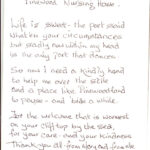 Pinewood Nursing Home.
Life is sweet - the poet said
Whate'er your circumstances
but sadly now within my head
is the only part that dances
So now I need a kindly hand
to help me over the stile
and a place like Pinewood and
to pause - and bide a while.
For the welcome that is warmest
on your clifftop by the sea,
for your care - and your kindness
Thank you all - from Mary and from me